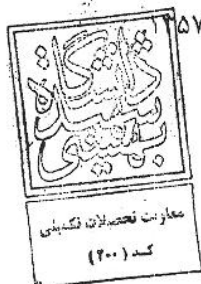 ۱۳۵۷
دانشگاه
شهید
بهشتی
معاونت تحصیلات تکمیلی
کد (۲۰۰)